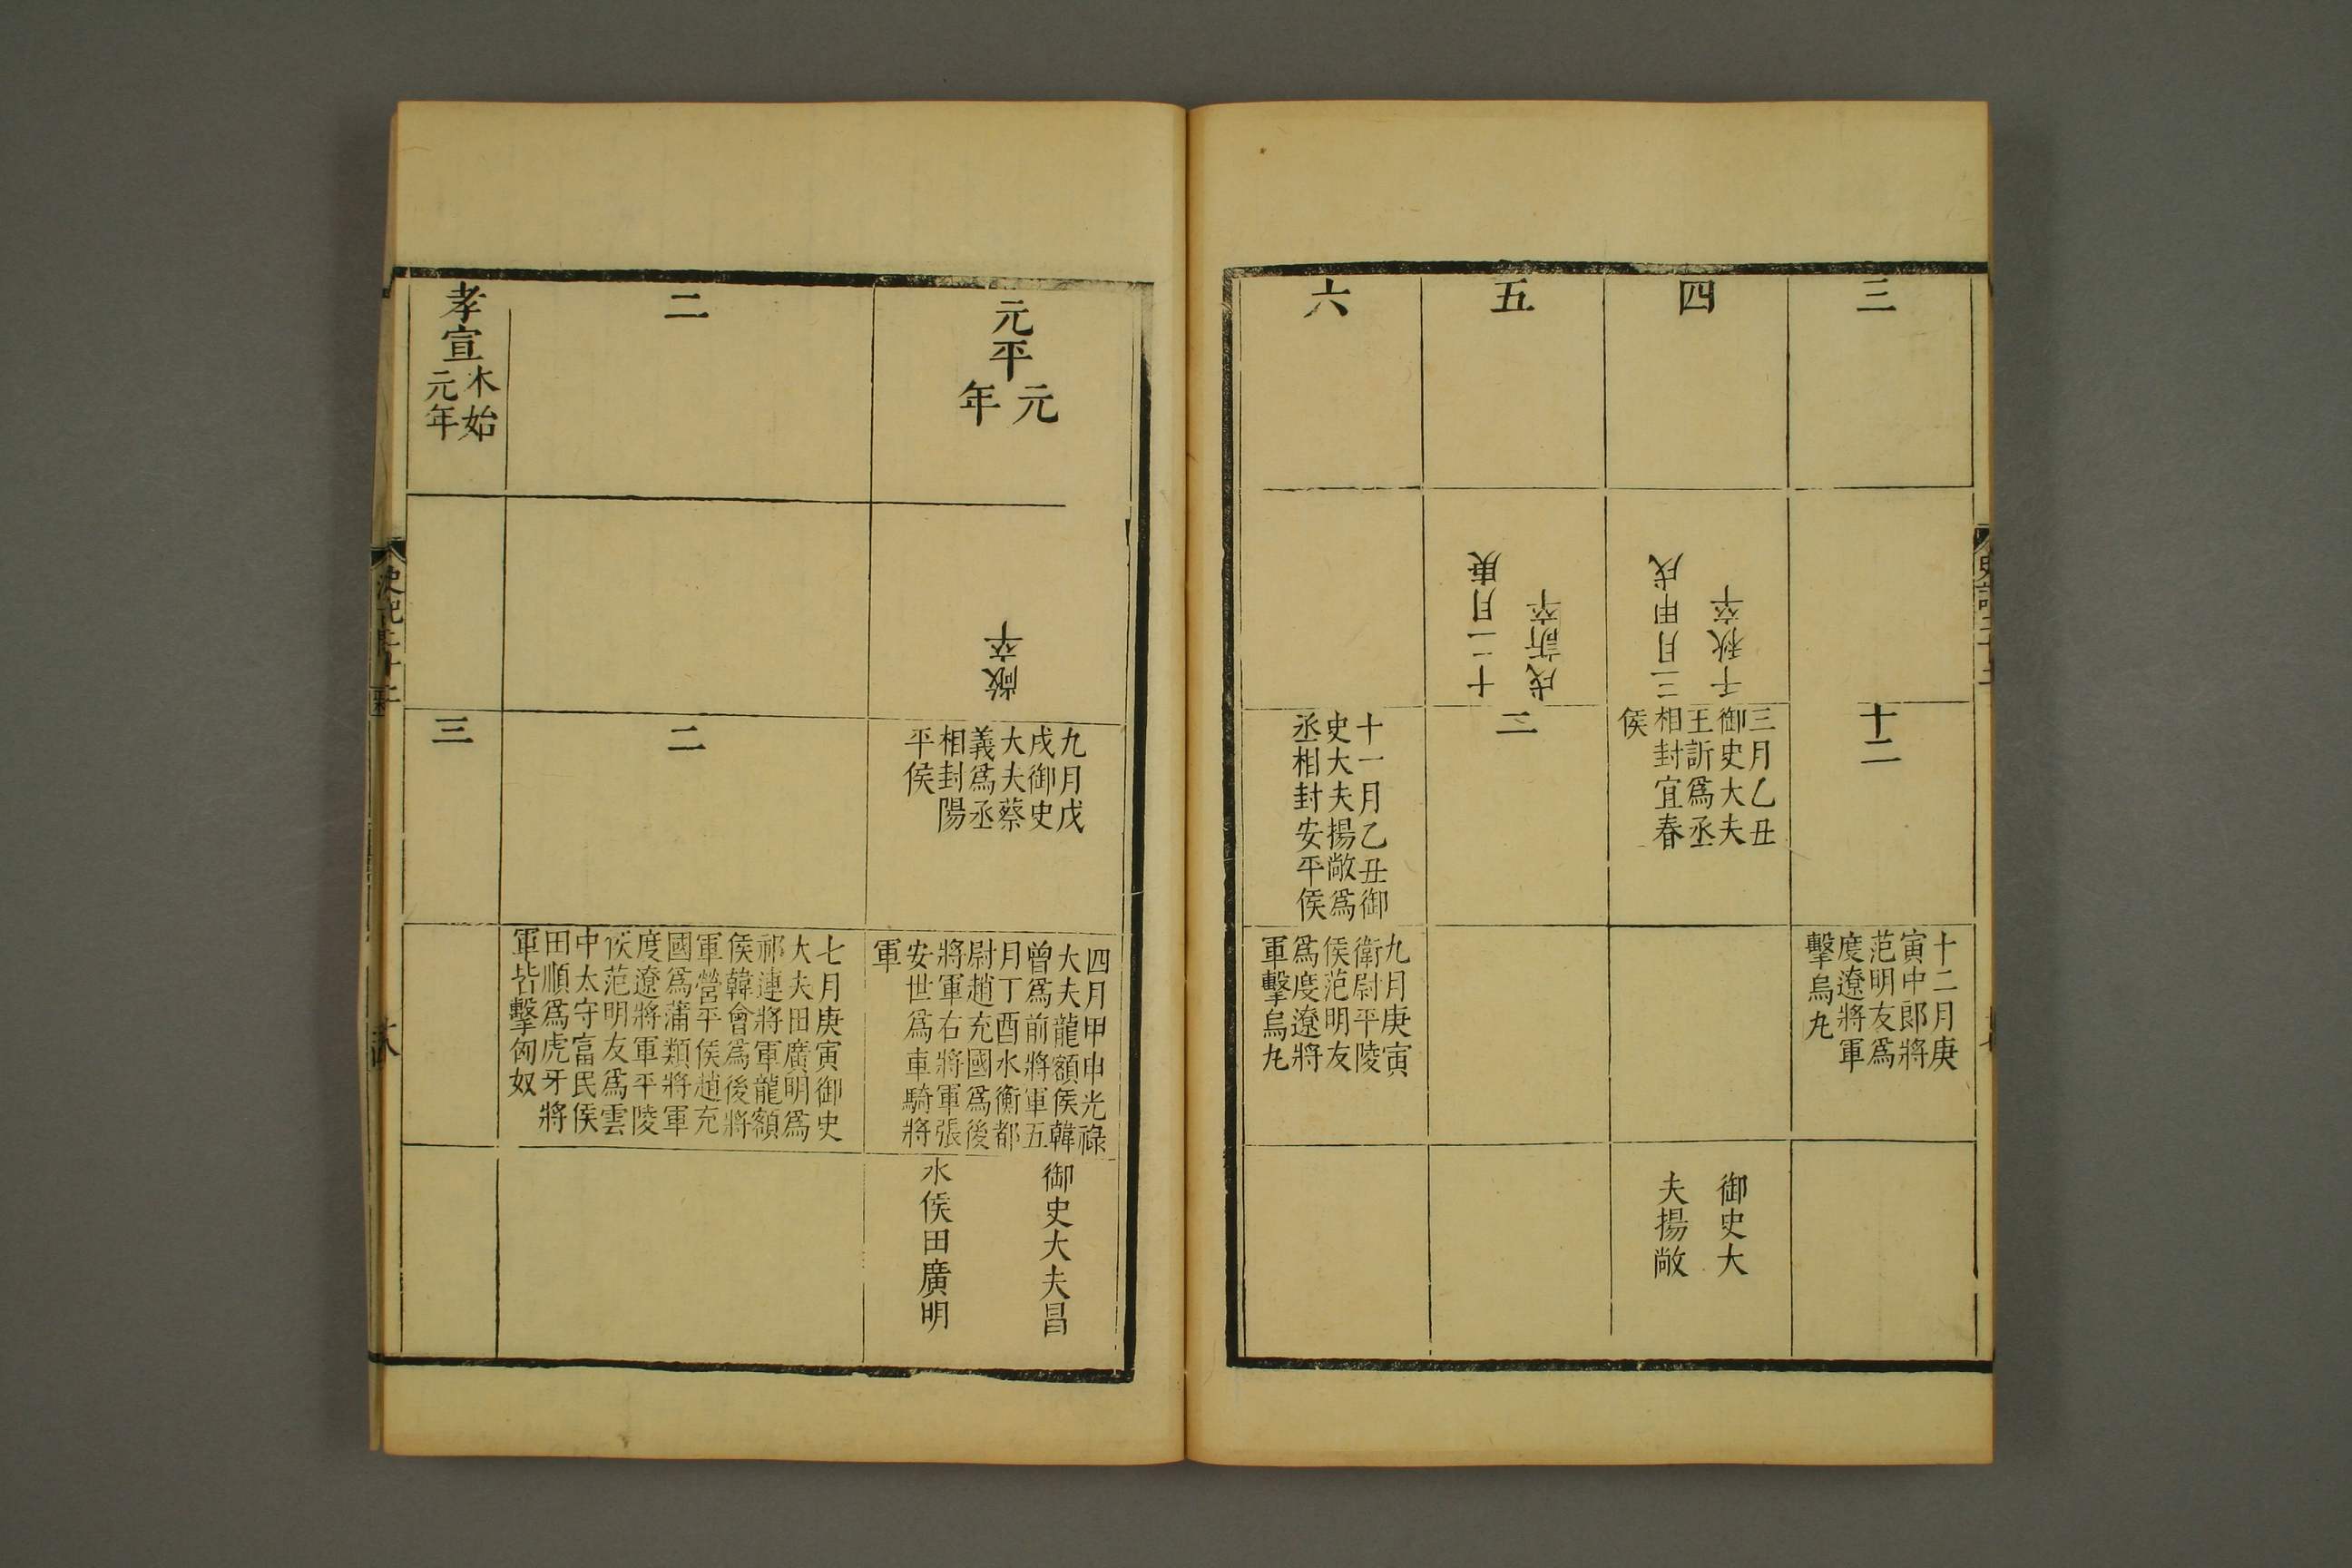 三
十二
十二月庚
寅中郎將
范明友爲
度遼將軍
擊烏丸
四
三月甲戌
千秋卒
三月乙丑
御史大夫
王訢爲丞
相封宜春
侯
御史大
夫揚敞
五
十二月庚
戌訢卒
二
六
十一月乙丑御
史大夫揚敞爲
丞相封安平侯
九月庚寅
衛尉平陵
侯范明友
爲度遼將
軍擊烏丸
元平
元
年
敞卒
九月戊
戌御史
大夫蔡
義爲丞
相封陽
平侯
四月甲申光祿
大夫龍額侯韓
曾爲前將軍五
月丁酉水衡都
尉趙充國爲後
將軍右將軍張
安世爲車騎將
軍
御史大夫昌
水侯田廣明
二
二
七月庚寅御史
大夫田廣明爲
祁連將軍龍額
侯韓會爲後將
軍營平侯趙充
國爲蒲類將軍
度遼將軍平陵
侯范明友爲雲
中太守富民侯
田順爲虎牙將
軍皆擊匈奴
孝宣
本始
元年
三
史記二十二